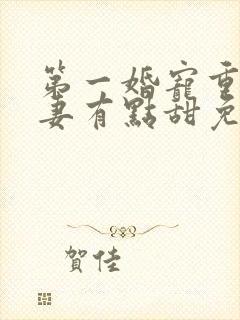 第一婚寵重
妻有點甜免
賀佳